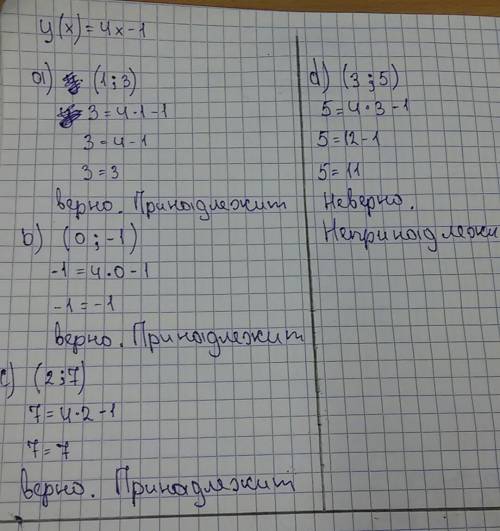 y(x)=4x-1
a) (1;3)
3=4·1-1
3=4-1
3=3
верно. Принадлежит
b) (0;-1)
-1=4·0-1
-1=-1
верно. Принадлежит
c) (2;7)
7=4·2-1
7=7
верно. Принадлежит
d) (3;5)
5=4·3-1
5=12-1
5=11
Неверно.
Непринадлежи